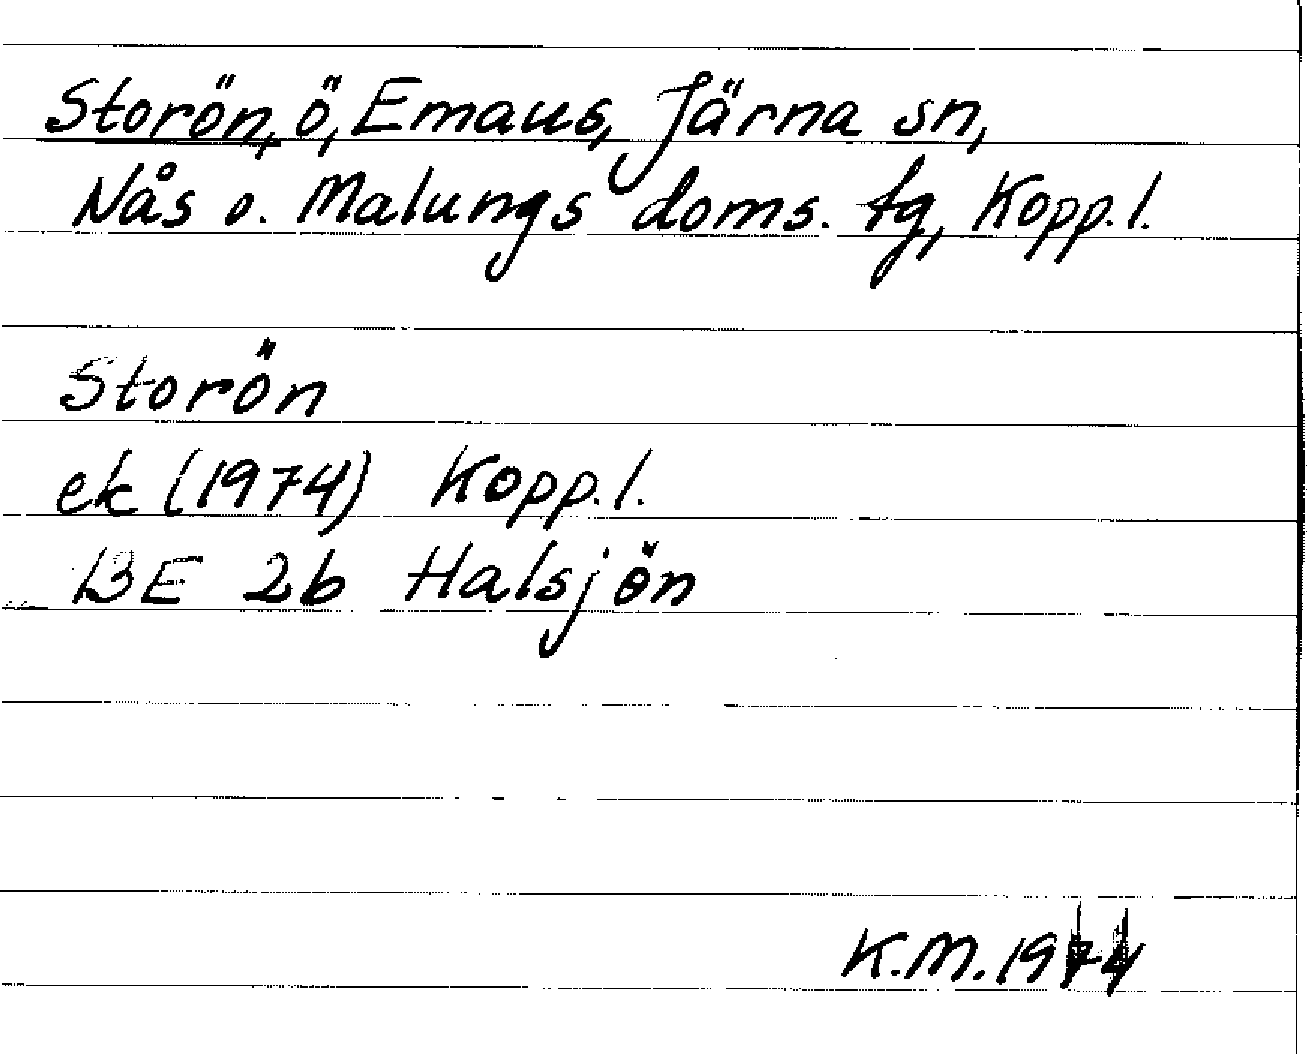 Storön, ö, Emaus, Järna sn,
Nås o. Malungs doms. tg, Kopp. l.
Storön
ek (1974) Kopp. l.
13E 2b Halsjön
K.M. 1974